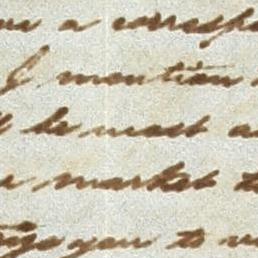 a corresp
I mention
be most a
market t
you to